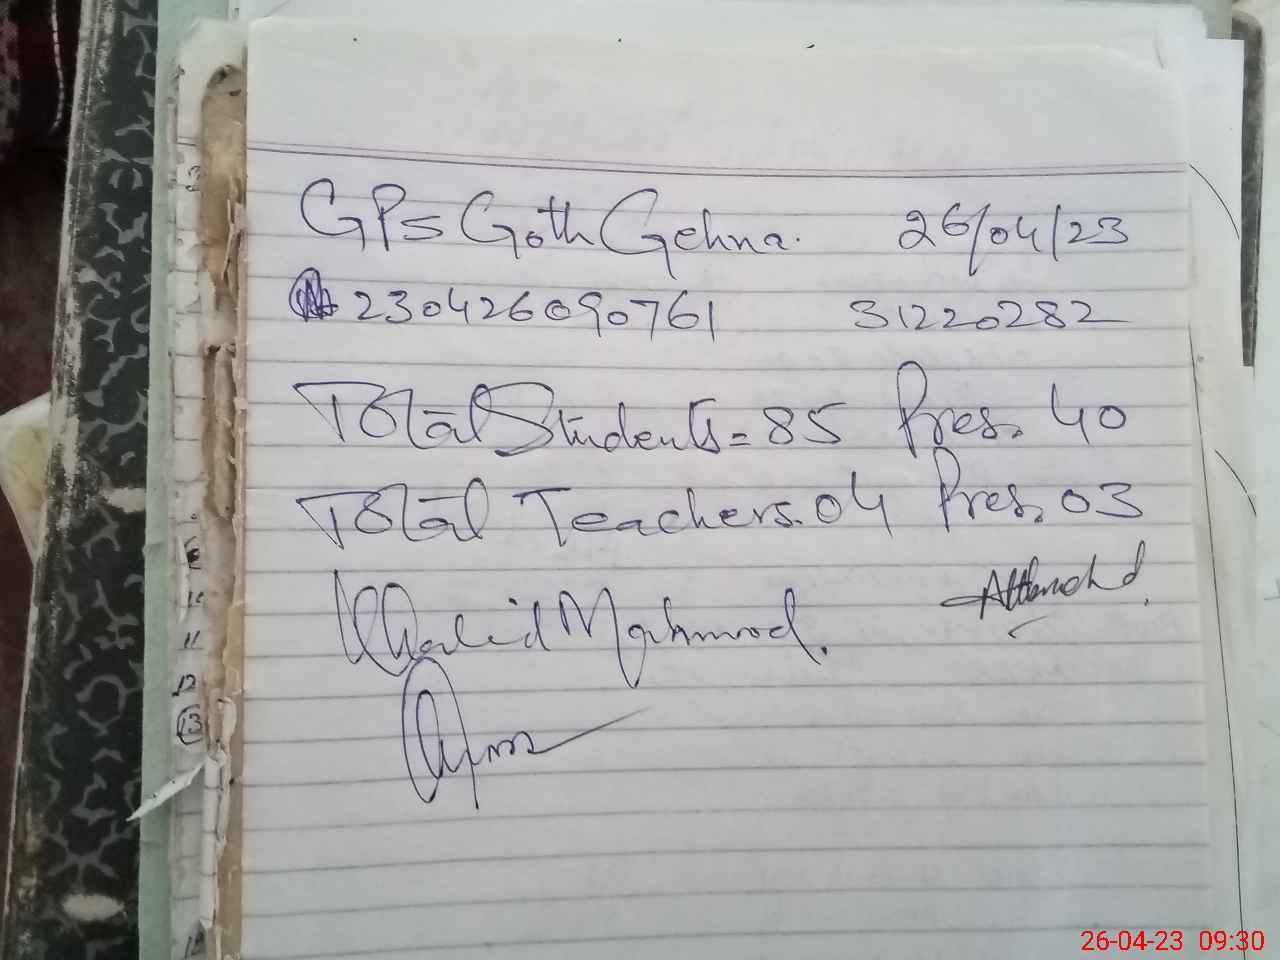 GPS Goth Gehna. 26/04/23
230426090761 31220282
Total Students = 85 Pres. 40
Total Teachers. 04 Pres. 03
Khalid Mahmood.
11
12
13
26-04-23 09:30